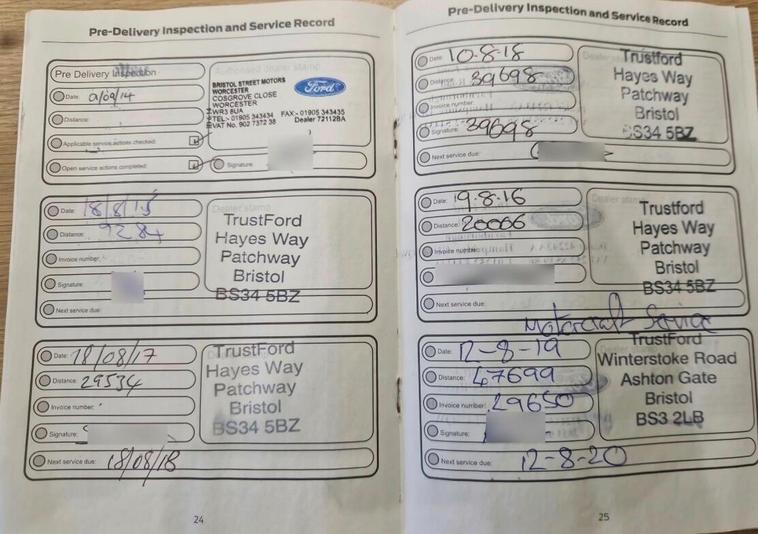 Pre-Delivery Inspection and Service Record
Pre Delivery Inspection
Date: 01/09/14
Distance:
Applicable service actions checked:
Open service actions completed:
Signature:
BRISTOL STREET MOTORS
WORCESTER
COSGROVE CLOSE
WORCESTER
WR3 8UA
TEL:- 01905 343434 FAX:- 01905 343435
VAT No. 902 7372 38 Dealer 72112BA
Ford
Date: 18/8/15
Distance: 9284
Invoice number:
Signature:
Next service due:
TrustFord
Hayes Way
Patchway
Bristol
BS34 5BZ
Date: 18/08/17
Distance: 29534
Invoice number:
Signature:
Next service due: 18/08/18
TrustFord
Hayes Way
Patchway
Bristol
BS34 5BZ
24
Pre-Delivery Inspection and Service Record
Date: 10.8.18
Distance: 39698
Invoice number:
Signature: 39698
Next service due:
Trustford
Hayes Way
Patchway
Bristol
BS34 5BZ
Date: 19.8.16
Distance: 20066
Invoice number:
Next service due:
Trustford
Hayes Way
Patchway
Bristol
BS34 5BZ
Motorcraft Service
Date: 12-8-19
Distance: 47699
Invoice number: 29650
Signature:
Next service due: 12-8-20
TrustFord
Winterstoke Road
Ashton Gate
Bristol
BS3 2LB
25